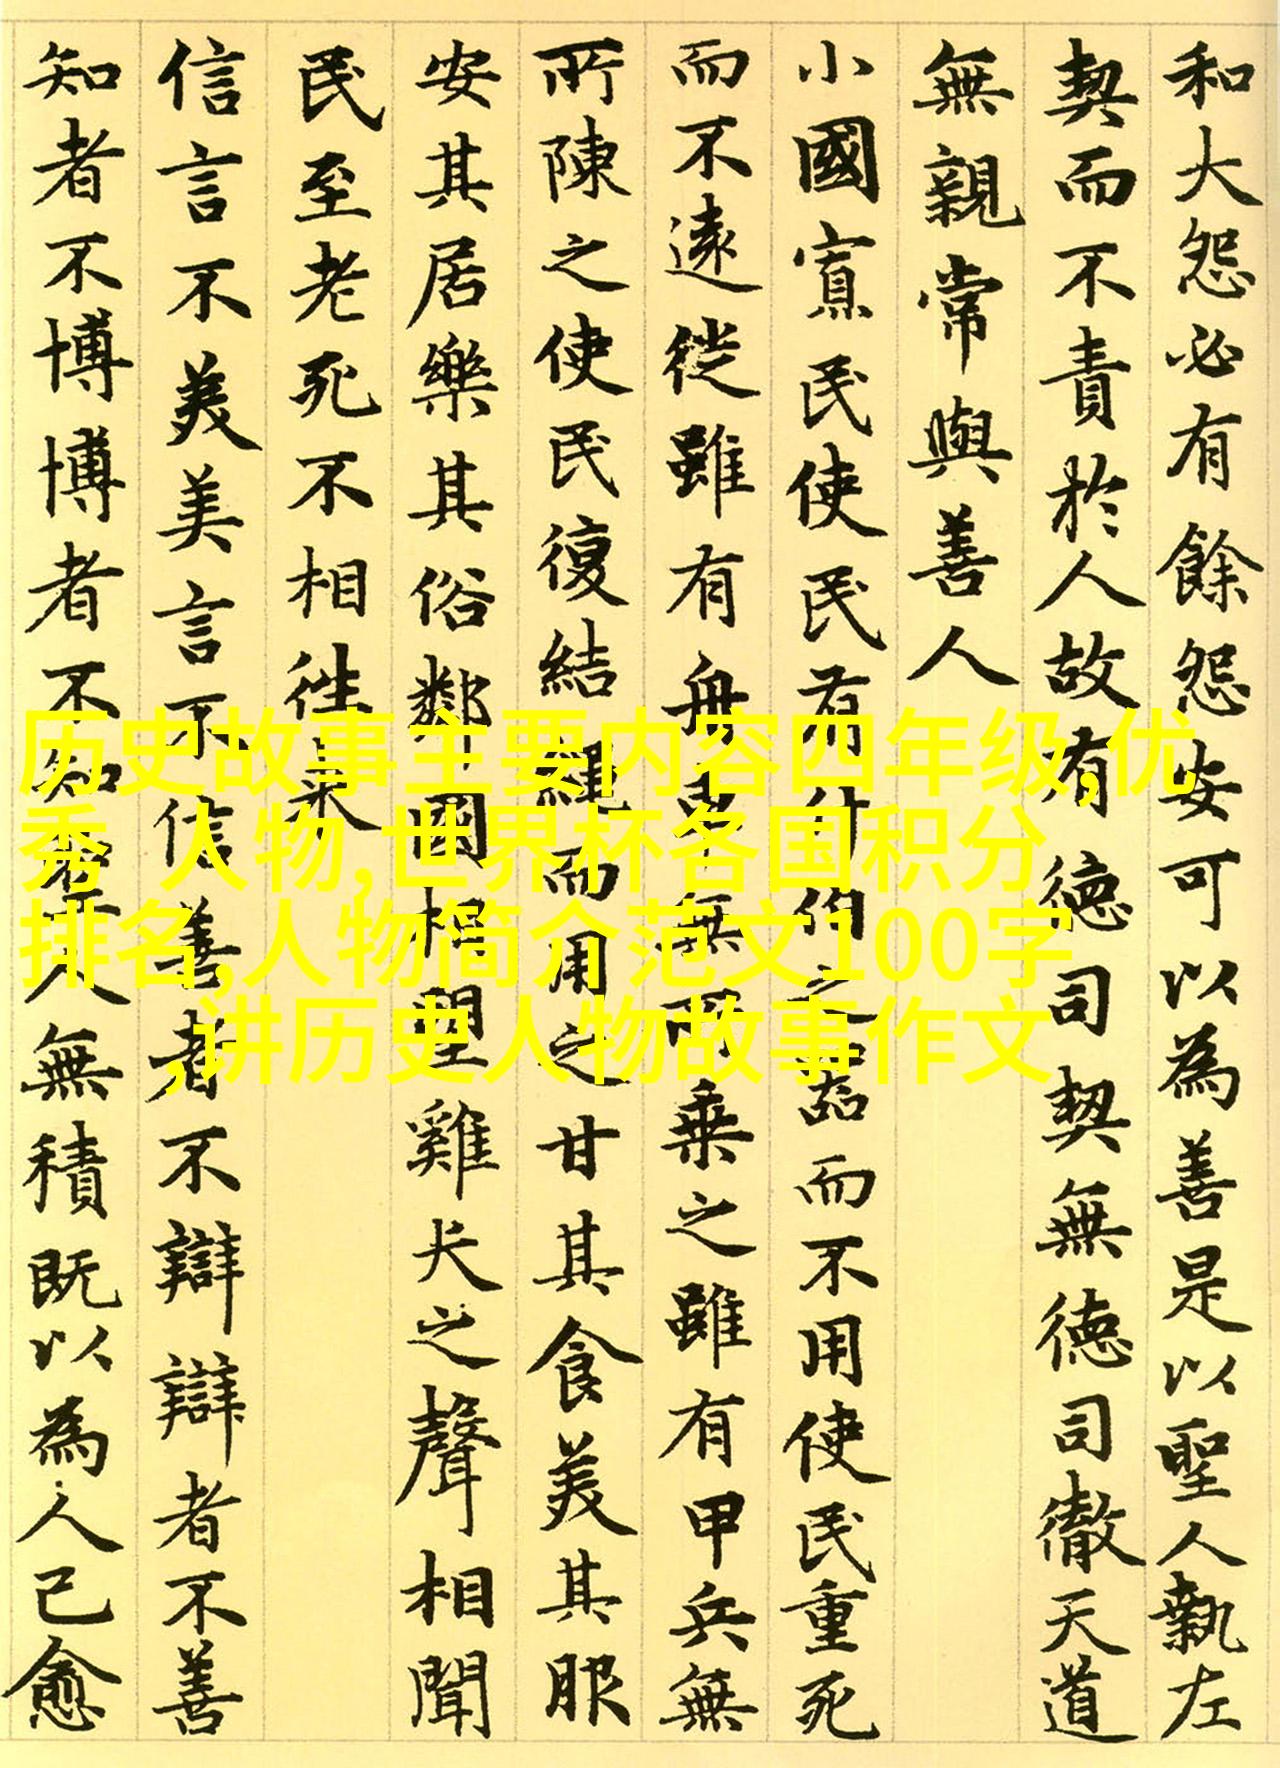 和大怨必有餘怨安可以為善是以聖人執左
契而不責於人故有德司契無德司徹天道
無親常與善人
小國寡民使民有什伯之器而不用使民重死
而不遠徙雖有舟車無所乘之雖有甲兵無
所陳之使民復結繩而用之甘其食美其服
安其居樂其俗鄰國相望雞犬之聲相聞
民至老死不相往来
信言不美美言不信善者不辯辯者不善
知者不博博者不知聖人無積既以為人己愈
历史故事主要内容四年级,优
秀 人物,世界杯各国积分
排名,人物简介范文100字
,讲历史人物故事作文